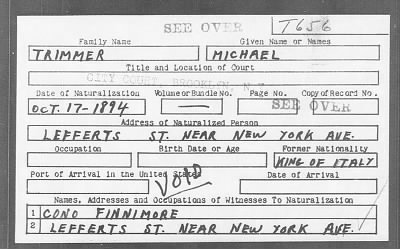 SEE OVER T656
Family Name Given Name or Names
TRIMMER MICHAEL
Title and Location of Court
CITY COURT, BROOKLYN, N.Y.
Date of Naturalization Volume or Bundle No. Page No. Copy of Record No.
OCT. 17-1894 — SEE OVER
Address of Naturalized Person
LEFFERTS ST. NEAR NEW YORK AVE.
Occupation Birth Date or Age Former Nationality
KING OF ITALY
Port of Arrival in the United States Date of Arrival
VOID
Names, Addresses and Occupations of Witnesses To Naturalization
1 CONO FINNIMORE
2 LEFFERTS ST. NEAR NEW YORK AVE.